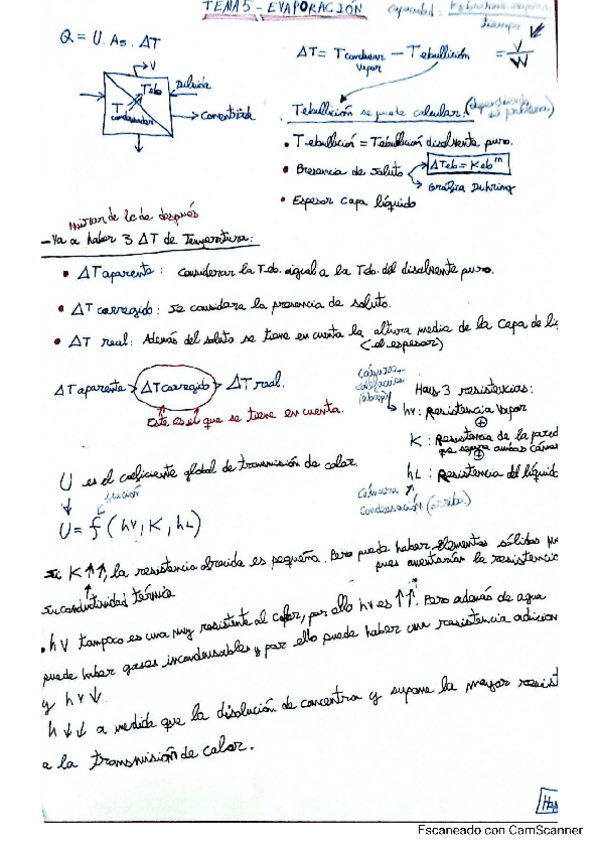 TEMA 5 - EVAPORACIÓN
capacidad =
tiempo
= V/W
Q = U. As. ΔT
ΔT = Tcondensar vapor - Tebullición
V
Teb
Diluida
T condensador
Concentrada
Tebullición se puede calcular: (dependiendo del problema)
• T ebullición = Tebullición disolvente puro.
• Presencia de soluto
ΔTeb = Keb m
Gráfica Duhring
• Espesor capa líquido
Mirar de lo de después
- Va a haber 3 ΔT de Temperatura:
• ΔT aparente: considerar la Teb. igual a la Teb. del disolvente puro.
• ΔT corregido: se considera la presencia de soluto.
• ΔT real: Además del soluto se tiene en cuenta la altura media de la capa de
(el espesor)
ΔT aparente > ΔT corregido > ΔT real.
Este es el que se tiene en cuenta.
Hay 3 resistencias:
cámara calefacción (abajo)
hv: Resistencia Vapor
+
K: Resistencia de la pared
que separa ambas
+
hL: Resistencia del líquido
cámara condensación (arriba)
U es el coeficiente global de transmisión de calor.
función
U = f (hv, K, hL)
Si K↑↑, la resistencia ofrecida es pequeña. Pero puede haber elementos sólidos
pues aumentarían la
su conductividad térmica
• hv tampoco es una muy resistente al calor, por ello hv es ↑↑. Pero además de agua
puede haber gases incondensables y por ello puede haber una resistencia
y hv ↓.
h ↓↓ a medida que la disolución de concentra y supone la mayor
a la transmisión de calor.
Escaneado con CamScanner